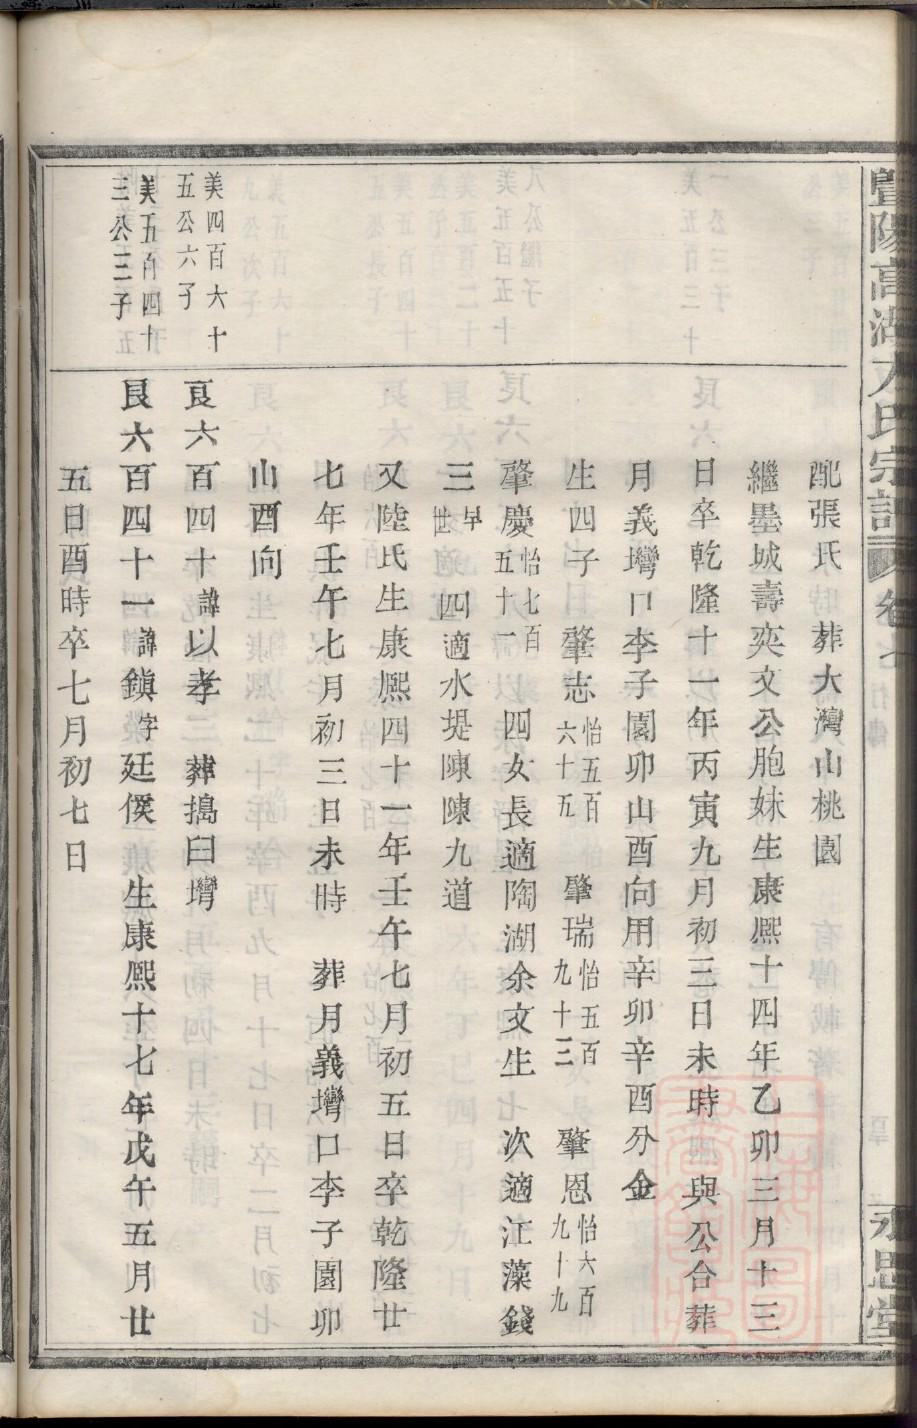 暨陽高湖 氏宗譜 卷七 行傳 永思堂
配張氏 葬大灣山桃園
繼墨城壽奕文公胞妹生康熈十四年乙卯三月十三
日卒乾隆十一年丙寅九月初三日未時 與公合葬
月義塆口李子園卯山酉向用辛卯辛酉分金
生四子 肇志怡五百六十五 肇瑞怡五百九十三 肇恩怡六百九十九
肇慶怡七百五十二 四女長適陶湖余文生 次適江藻錢
三早世 四適水堤陳陳九道
又陸氏生康熈四十一年壬午七月初五日卒乾隆廿
七年壬午七月初三日未時 葬月義塆口李子園卯
山酉向
美四百六十五公六子
良六百四十諱以孝 葬搗臼塆
美五百四十三公三子
良六百四十一諱鎭字廷僕 生康熈十七年戊午五月廿
五日酉時卒七月初七日